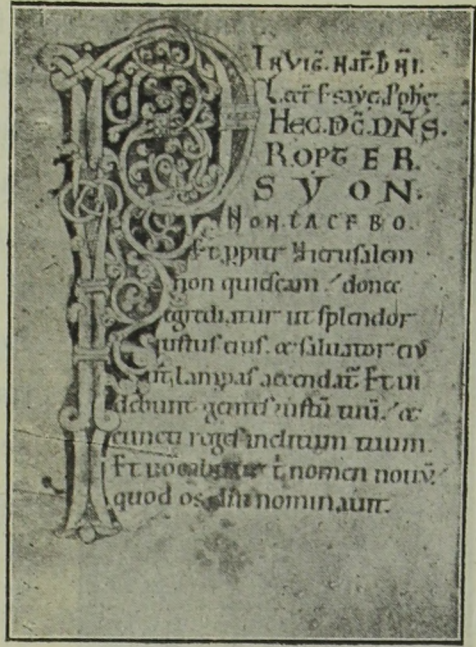 IN VIG̅. NAT̅. DN̅I.
Lect̅. s. ysaye. ꝓphe̅.
HEC. DC̅. DN̅S.
PROPT̅ ER
SYON.
NON. TACEBO.
Et ꝓpter hierusalem
non quiescam / donec
egrediatur ut splendor
iustus eius. & saluator ei
ut lampas accendat̅. Et ui
debunt gentes iustu̅ tuu̅. / &
cuncti reges inclitum tuum.
Et uocabitur t̅ nomen nouu̅ /
quod os dn̅i nominauit.